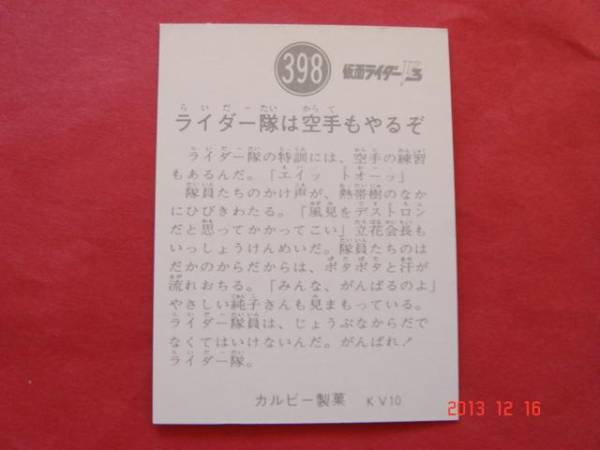 398 仮面ライダーV3
ライダー隊は空手もやるぞ
ライダー隊の特訓には、空手の練習
もあるんだ。「エイッ トオーッ」
隊員たちのかけ声が、熱帯樹のなか
にひびきわたる。「風見をデストロン
だと思ってかかってこい」立花会長も
いっしょうけんめいだ。隊員たちのは
だかのからだからは、ポタポタと汗が
流れおちる。「みんな、がんばるのよ」
やさしい純子さんも見まもっている。
ライダー隊員は、じょうぶなからだで
なくてはいけないんだ。がんばれ!
ライダー隊。
カルビー製菓 KV10
2013 12 16